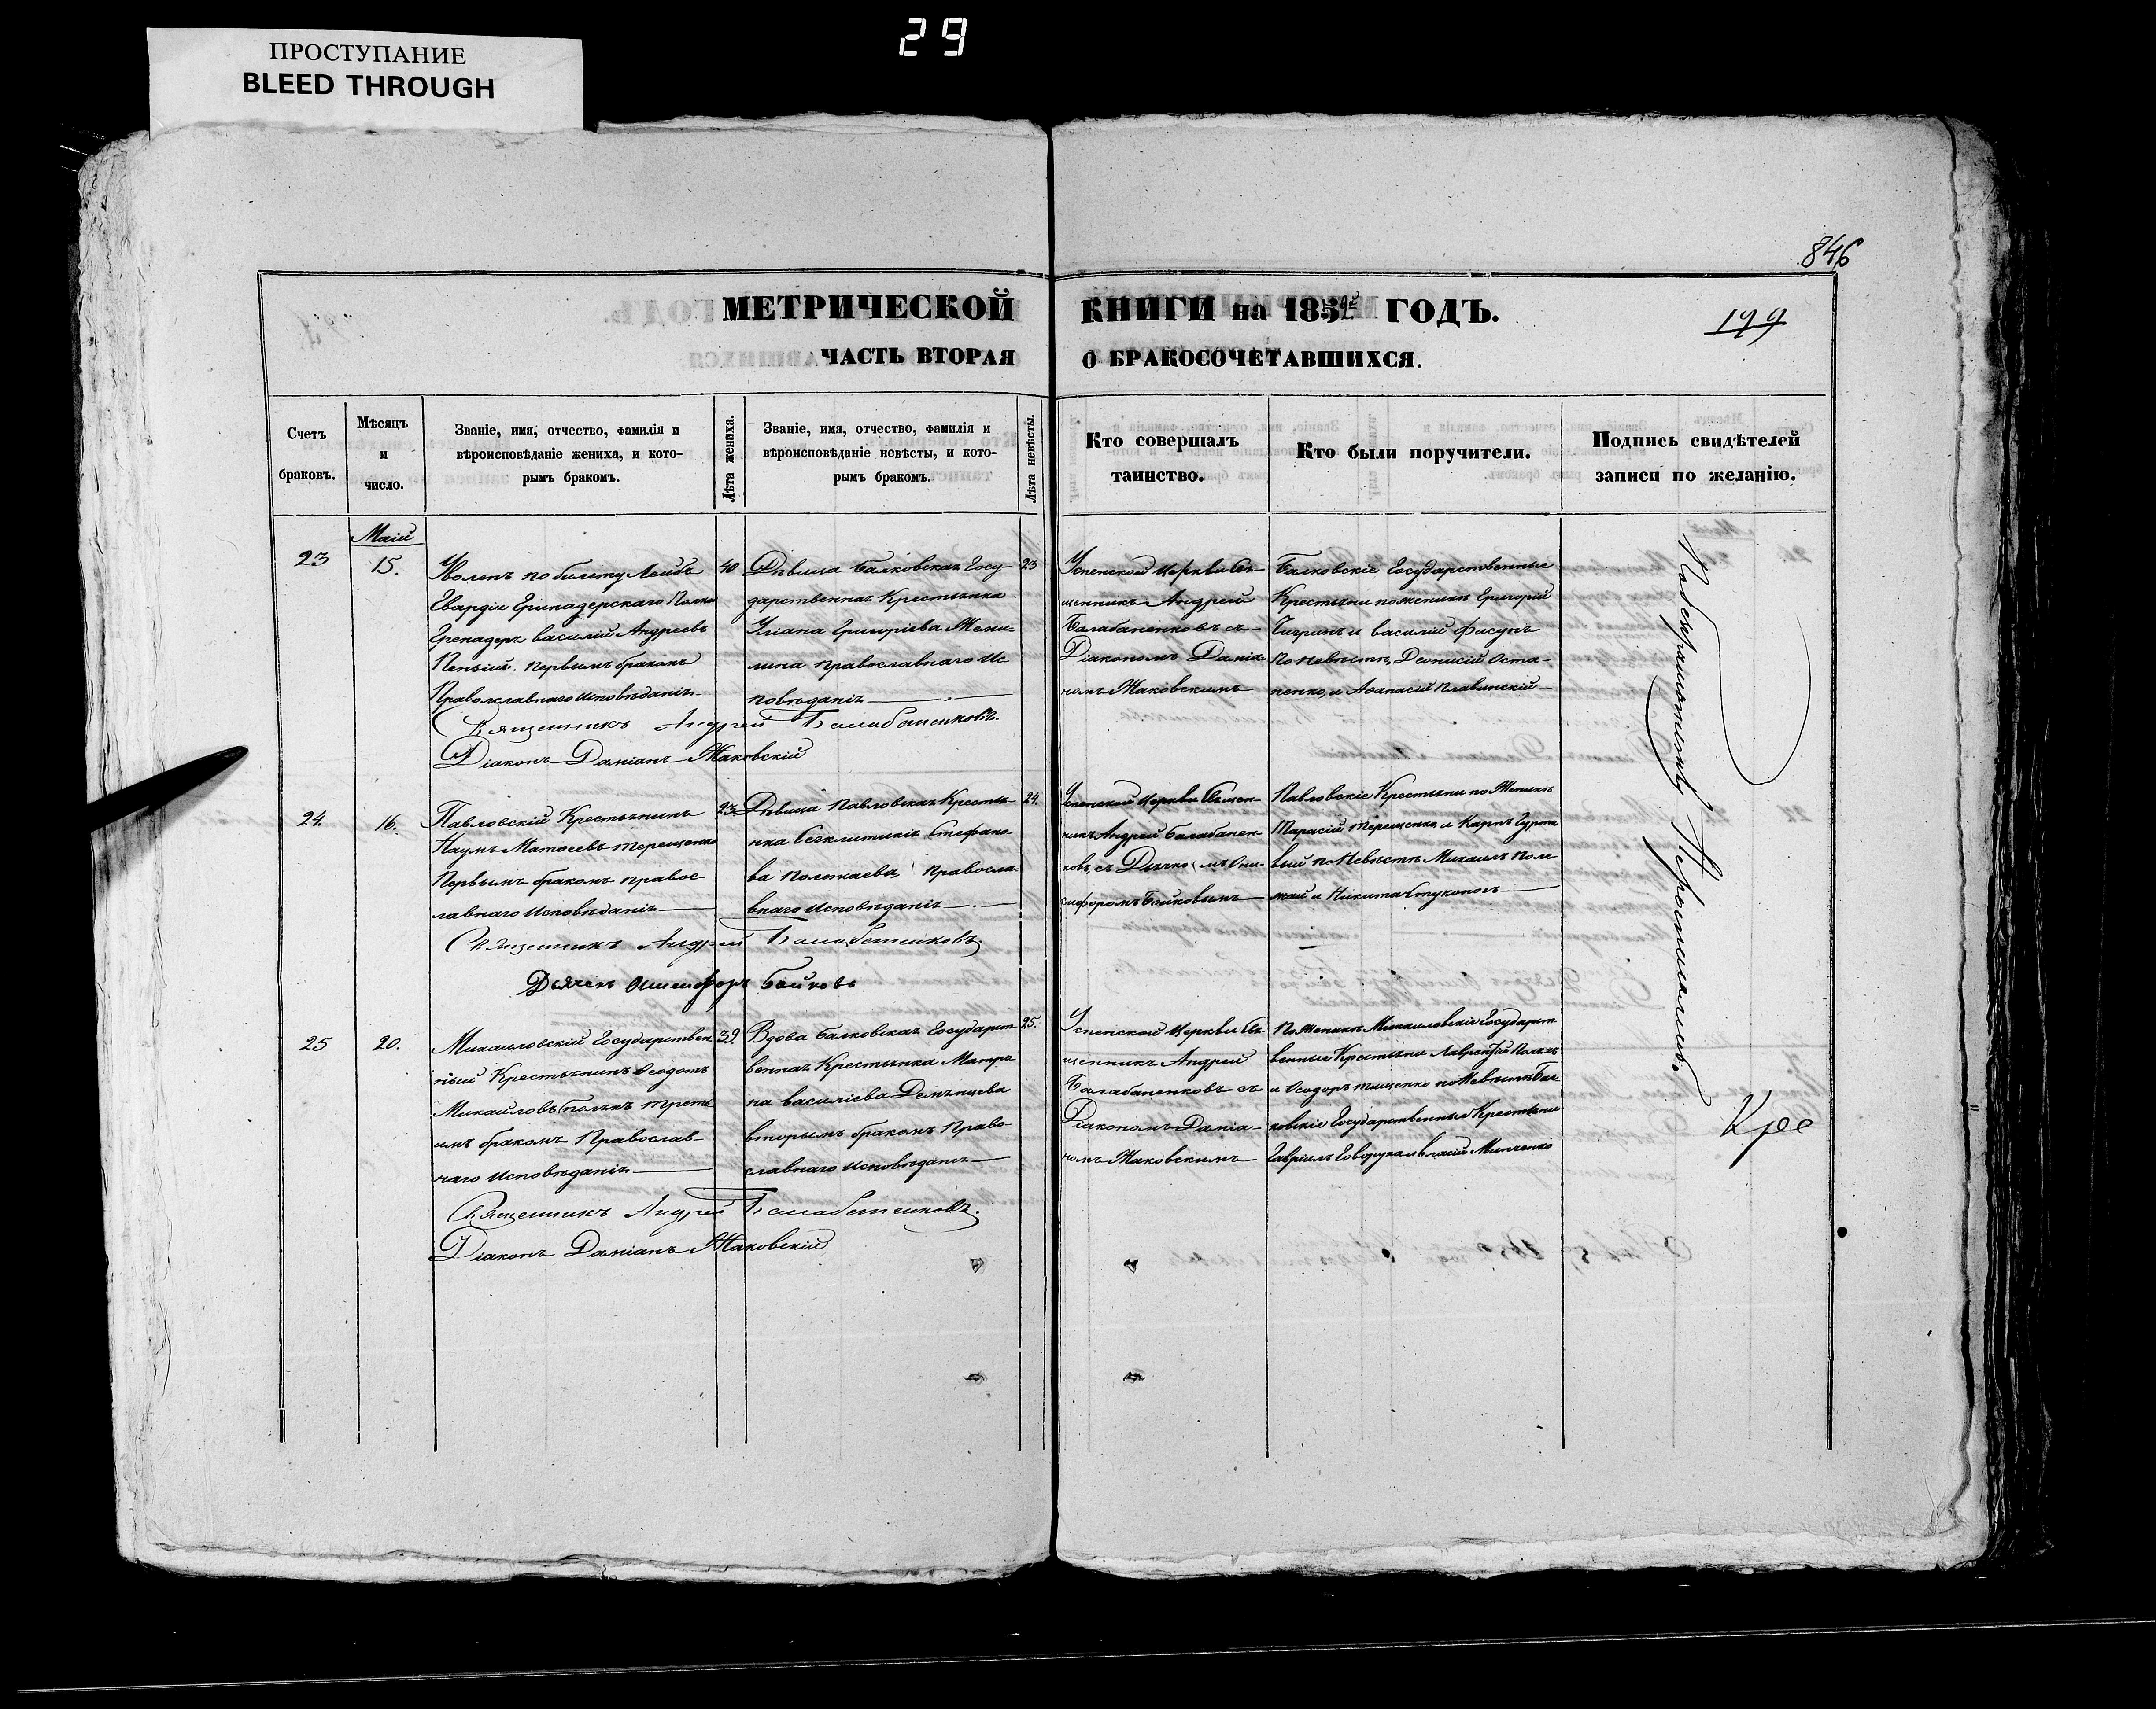 29
ПРОСТУПАНИЕ
BLEED THROUGH
846
МЕТРИЧЕСКОЙ КНИГИ на 1859й ГОДЪ.
199
ЧАСТЬ ВТОРАЯ О БРАКОСОЧЕТАВШИХСЯ.
Счетъ браковъ.
Мѣсяцъ и число.
Званіе, имя, отчество, фамилія и
вѣроисповѣданіе жениха, и кото-
рымъ бракомъ.
Лѣта жениха.
Званіе, имя, отчество, фамилія и
вѣроисповѣданіе невѣсты, и кото-
рымъ бракомъ.
Лѣта невѣсты.
Кто совершалъ
таинство.
Кто были поручители.
Подпись свидѣтелей
записи по желанію.
Маій
23
15.
Уволенъ по билету Лейбъ
Гвардіи Гринадерскаго Полка
Гренадеръ василій Андреевъ
первымъ бракомъ
Православнаго исповѣданія
40
Дѣвица Балковская Госу
дарственная Крестьянка
Уліана Григоріева
православнаго Ис
повѣданія
23
Успенской церкви Свя
щенникъ Андрей
Балабаненковъ съ
Діакономъ Даміа
номъ Маковскимъ
Балковскіе Государственные
Крестьяне по женихѣ Григорій
Чигринъ и василій Фисунъ
По Невѣстѣ, Деонисій Оста-
пенко, и Аѳанасій Плавинскій
Священникъ Андрей Балабаненковъ.
Діаконъ Даміанъ Маковскій
24.
16.
Павловскій Крестьянинъ
Наумъ Матѳеевъ Терещенко
Первымъ бракомъ правос
лавнаго Исповѣданія
23
Дѣвица Павловская Крестья-
нка Стефано
ва Православ
внаго Исповѣданія
24.
Успенской Церкви Священ-
никъ Андрей Балабанен-
ковъ, съ Дьячкомъ Они-
сифоромъ Бойковымъ
Павловскіе Крестьяне по Женихѣ
Тарасій Терещенко, и Карпъ Гурто
вый по Невѣстѣ Михаилъ Поло
жай и Никита Стуконогъ
Священникъ Андрей Балабаненковъ.
Дьячекъ Онисифоръ Бойковъ
25
20.
Михаиловскій Государствен
ный Крестьянинъ Ѳеодотъ
Михаиловъ Полякъ треть
имъ бракомъ Православ-
наго исповѣданія
39.
Вдова Балковская Государст
венная Крестьянка Матре
на василіева
вторымъ бракомъ Право
славнаго исповѣданія
25.
Успенской Церкви Свя
щенникъ Андрей
Балабаненковъ съ
Діакономъ Даміа-
номъ Маковскимъ
По Женихѣ Михаиловскіе Государст
венные Крестьяне Лаврентій Полякъ
и Ѳеодоръ Тищенко по Невѣстѣ Бал
ковскіе Государственные Крестьяне
Гавріилъ Говоруха и власій Минченко
Священникъ Андрей Балабаненковъ.
Діаконъ Даміанъ Маковскій